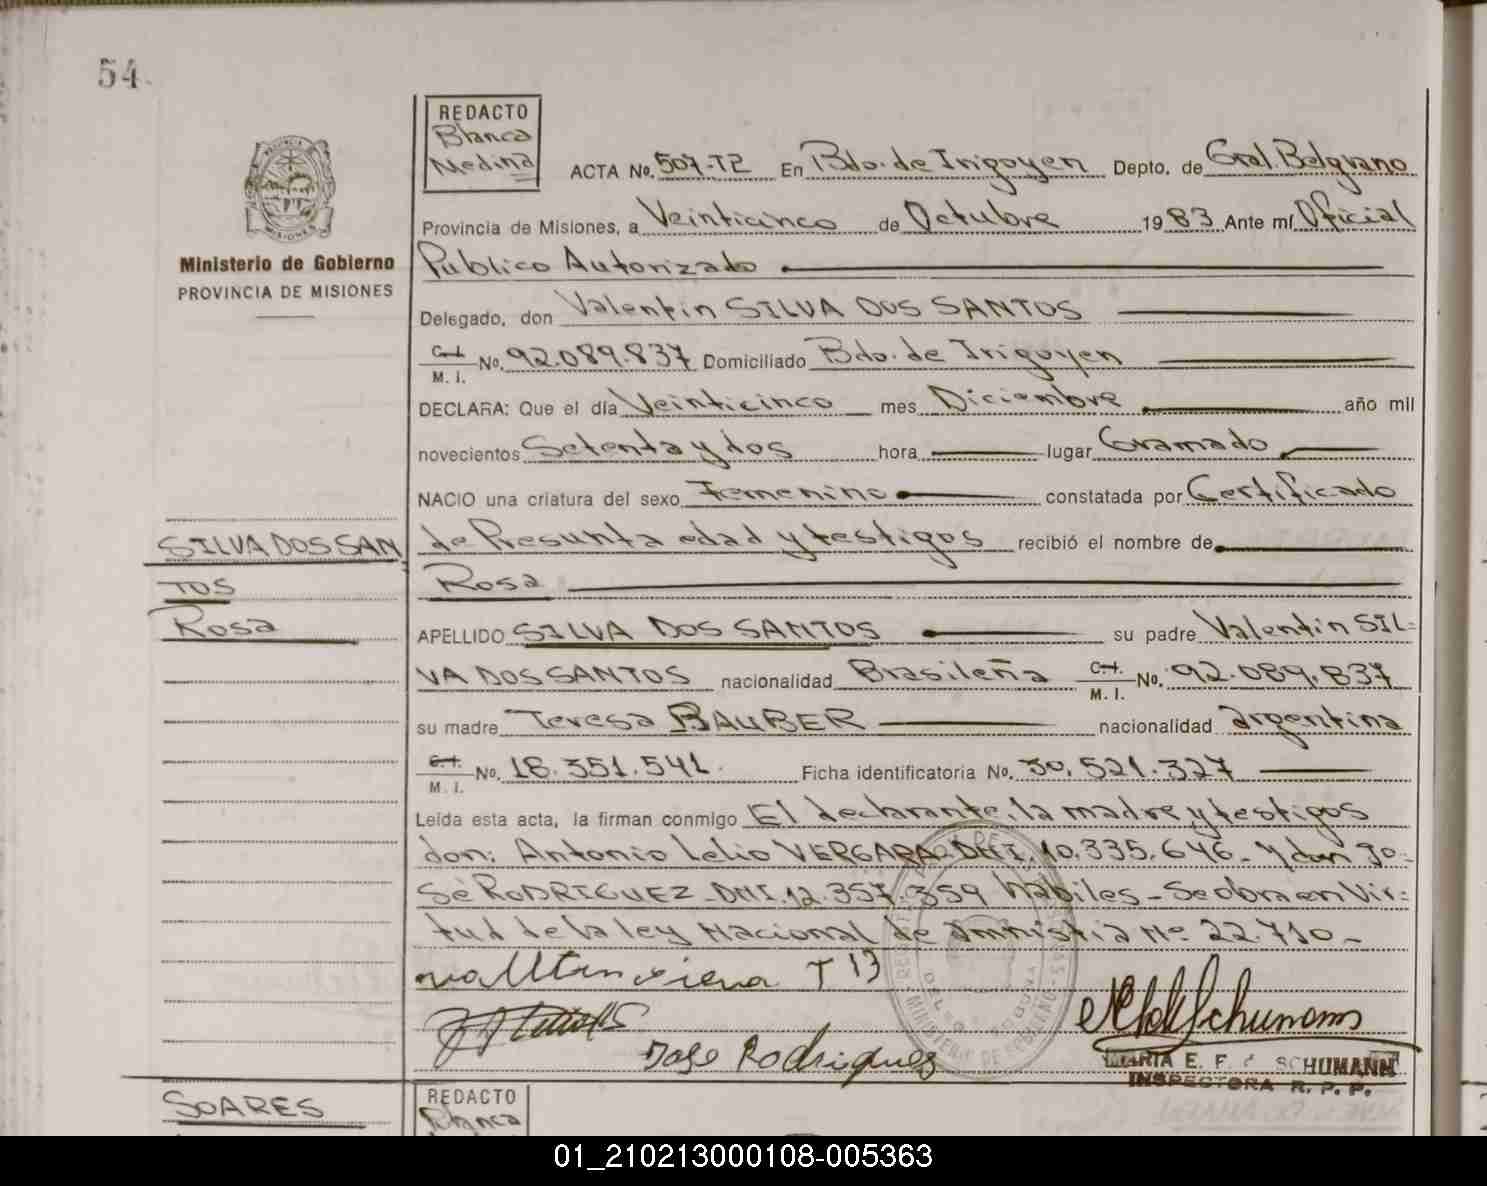 54
REDACTO
Blanca
Medina
ACTA No. 507-T2 En Bdo. de Irigoyen Depto. de Gral. Belgrano
Provincia de Misiones, a Veinticinco de Octubre 1983 Ante mí Oficial
Publico Autorizado
Ministerio de Gobierno
PROVINCIA DE MISIONES
Delegado, don Valentin SILVA DOS SANTOS
C.I. M. I. No. 92.089.837 Domiciliado Bdo. de Irigoyen
DECLARA: Que el día Veinticinco mes Diciembre año mil
novecientos Setenta y dos hora lugar Gramado
NACIO una criatura del sexo Femenino constatada por Certificado
de Presunta edad y testigos recibió el nombre de
Rosa
SILVA DOS SAN
TOS
Rosa
APELLIDO SILVA DOS SANTOS su padre Valentin SIL=
VA DOS SANTOS nacionalidad Brasileña C.I. M. I. No. 92.089.837
su madre Teresa BAUBER nacionalidad argentina
C.I. M. I. No. 18.351.541. Ficha identificatoria No. 30.521.327
Leída esta acta, la firman conmigo El declarante, la madre y testigos
don: Antonio Lelio VERGARA-DNI.10.335.646- y don Jo=
sé RODRIGUEZ-DNI.12.357.359 habiles- Se obra en vir=
tud de la ley Nacional de amnistia Nº 22.710-
Jose Rodriguez
MARIA E. F. SCHUMANN
INSPECTORA R. P. P.
SOARES
REDACTO
Blanca
01_210213000108-005363